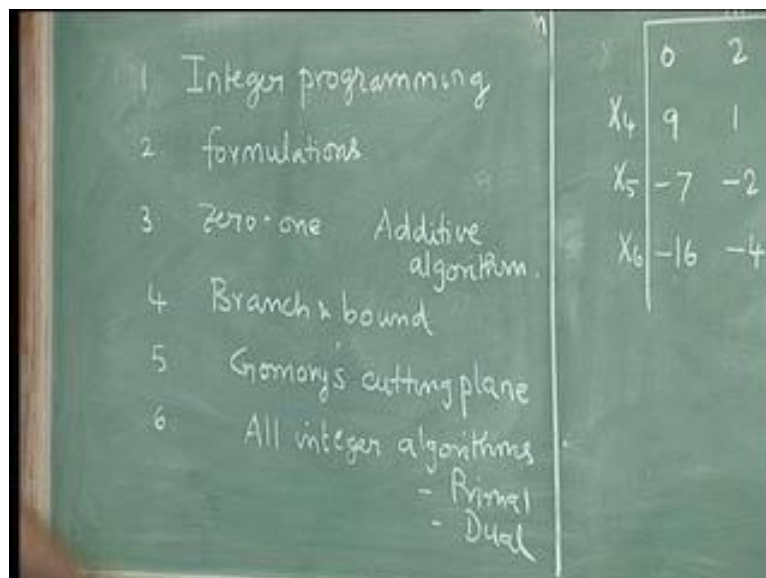 1 Integer programming
2 formulations
3 Zero-one Additive
algorithm.
4 Branch & bound
5 Gomory's cutting plane
6 All integer algorithms
- Primal
- Dual
0 2
X4 9 1
X5 -7 -2
X6 -16 -4